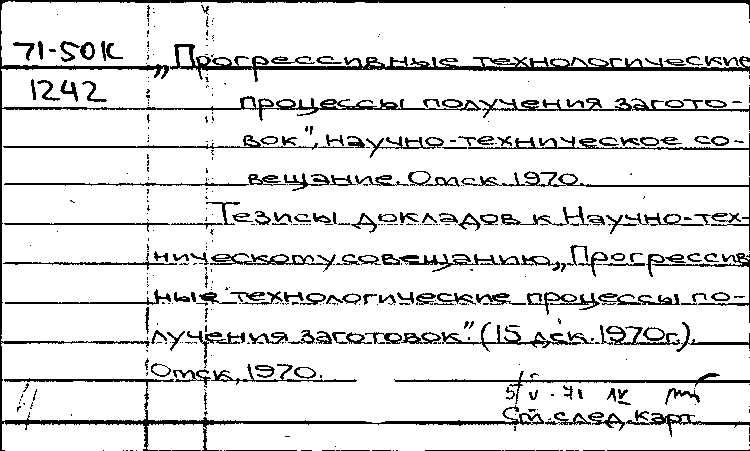 71-50К
1242
„Прогрессивные технологические
процессы получения загото-
вок", научно-техническое со-
вещание. Омск. 1970.
Тезисы докладов к Научно-тех-
ническому совещанию „Прогрессив
ные технологические процессы по-
лучения заготовок". (15 дек. 1970г.).
Омск, 1970.
5/V-71 
См. след. карт.